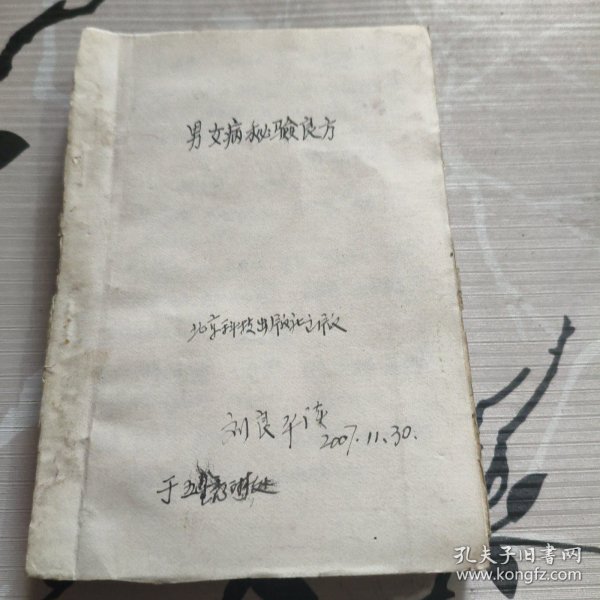 男女病秘验良方
北京科技出版社出版
刘良平读
2007.11.30.
于
孔夫子旧书网
www.kongfz.com